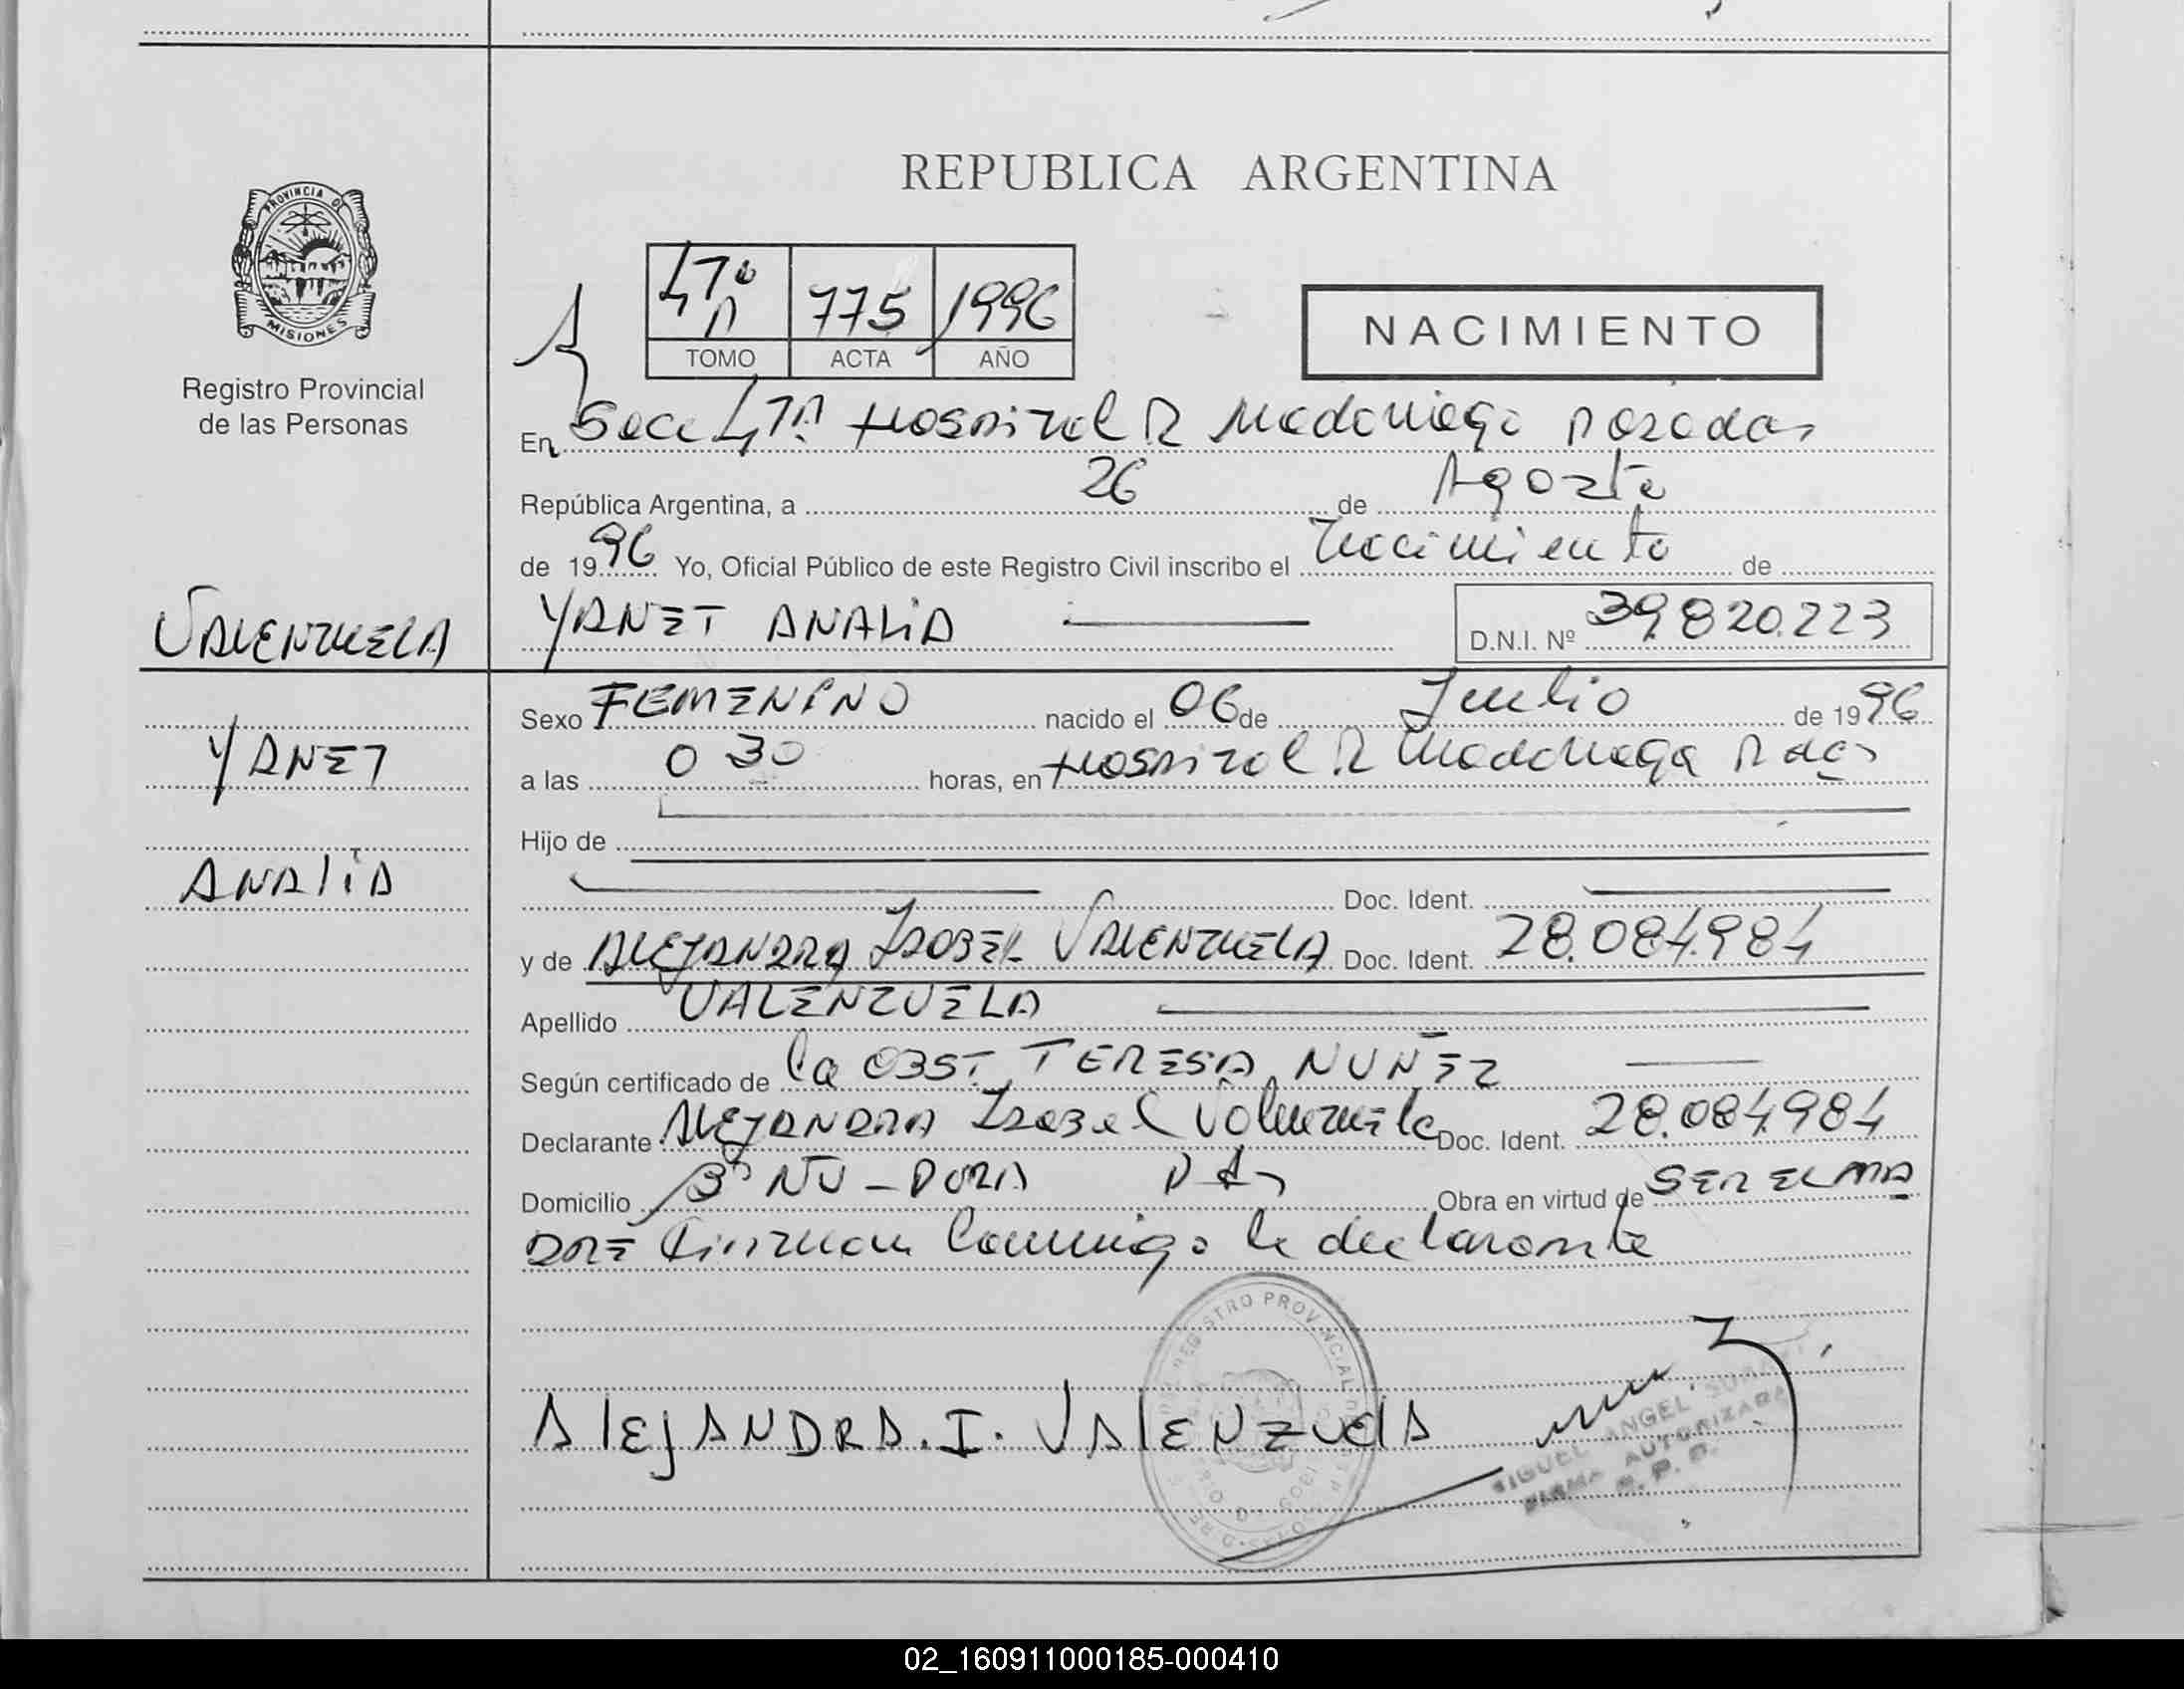 REPUBLICA ARGENTINA
PROVINCIA DE
MISIONES
Registro Provincial
de las Personas
47º A 775 1996
TOMO ACTA AÑO
NACIMIENTO
En Secc 47A Hospital R Madariaga Posadas
República Argentina, a 26 de Agosto
de 1996 Yo, Oficial Público de este Registro Civil inscribo el Nacimiento de
YANET ANALIA D.N.I. Nº 39.820.223
VALENZUELA
YANET
ANALIA
Sexo FEMENINO nacido el 06 de Julio de 1996
a las 0 30 horas, en Hospital R Madariaga Pdas
Hijo de
Doc. Ident.
y de ALEJANDRA ISABEL VALENZUELA Doc. Ident. 28.084.984
Apellido VALENZUELA
Según certificado de la OBST. TERESA NUÑEZ
Declarante ALEJANDRA Isabel Valenzuela Doc. Ident. 28.084.984
Domicilio Bº ÑU-PORA Obra en virtud de SER EL MA
DRE Firman Conmigo la declarante
REGISTRO PROVINCIAL
AlEjANDRA. I. VAlENZuElA
MIGUEL ANGEL
FIRMA AUTORIZADA
R. P. P.
02_160911000185-000410